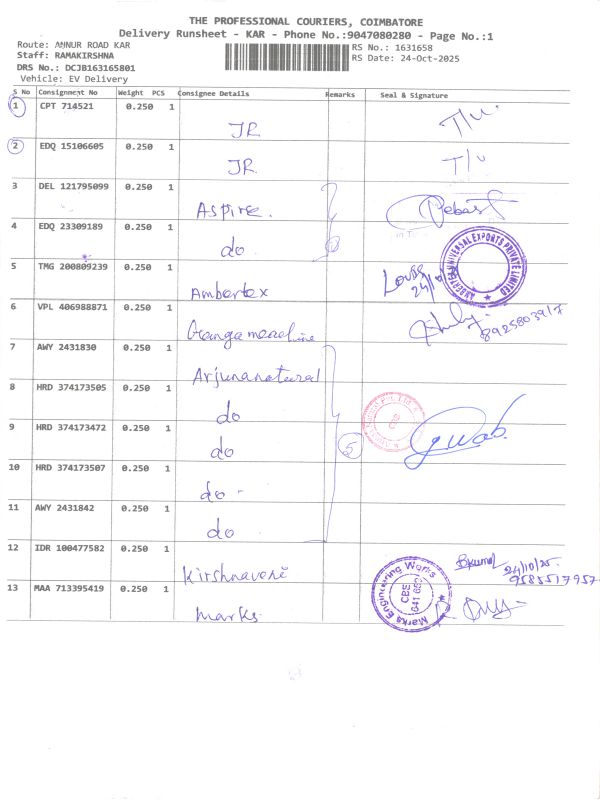 THE PROFESSIONAL COURIERS, COIMBATORE
Delivery Runsheet - KAR - Phone No.:9047080280 - Page No.:1
Route: ANNUR ROAD KAR
RS No.: 1631658
Staff: RAMAKIRSHNA
RS Date: 24-Oct-2025
DRS No.: DCJB163165801
Vehicle: EV Delivery
S No Consignment No Weight PCS Consignee Details Remarks Seal & Signature
1 CPT 714521 0.250 1 JR T/u.
2 EDQ 15106605 0.250 1 JR T/u
3 DEL 121795099 0.250 1 Aspire.
4 EDQ 23309189 0.250 1 do.
UNIVERSAL EXPORTS PRIVATE LIMITED
5 TMG 200809239 0.250 1 Ambertex
6 VPL 406988871 0.250 1 8925803917
7 AWY 2431830 0.250 1 Arjunanatural
8 HRD 374173505 0.250 1 do
9 HRD 374173472 0.250 1 do
5
10 HRD 374173507 0.250 1 do -
11 AWY 2431842 0.250 1 do
12 IDR 100477582 0.250 1 Kirshnaveni 24/10/25.
9585517957
13 MAA 713395419 0.250 1 Marks.
Marks Engineering Works
CBE
641 652